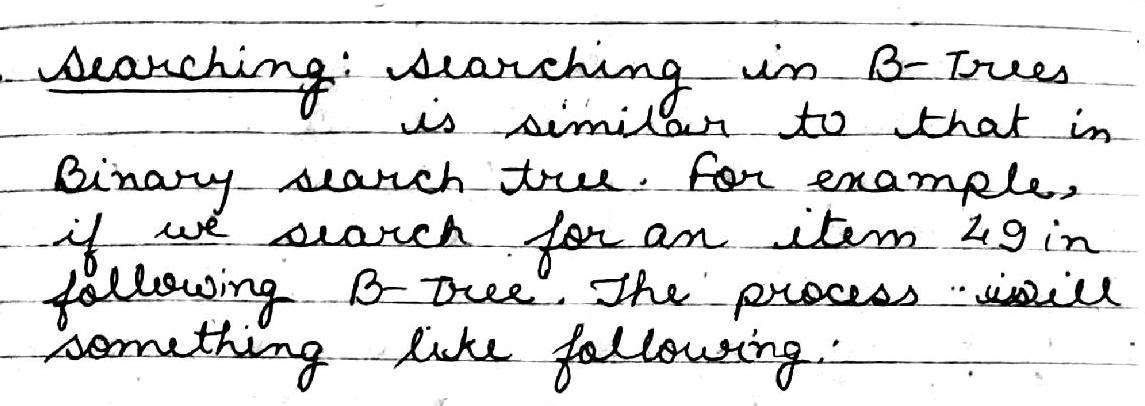 Searching: Searching in B-Trees
is similar to that in
Binary search tree. For example,
if we search for an item 49 in
following B-Tree. The process will
something like following.